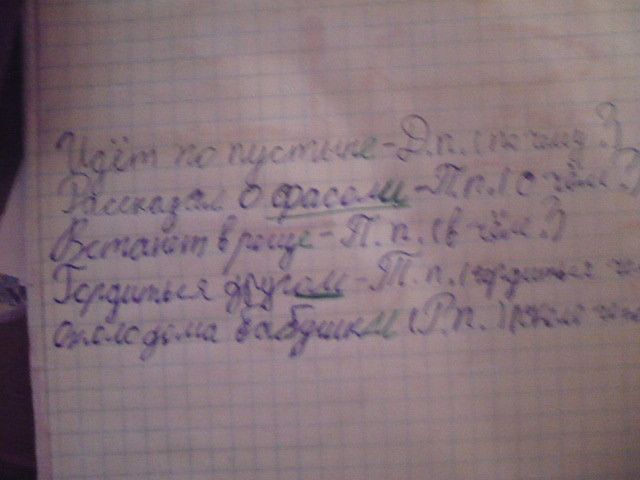 Идёт по пустыне-Д.п.(по чему?)
Рассказал о фасоли-П.п.(о чём?)
Встанет в роще-П.п.(в чём?)
Гордиться другом-Т.п.(гордиться
около дома бабушки(Р.п.)(около